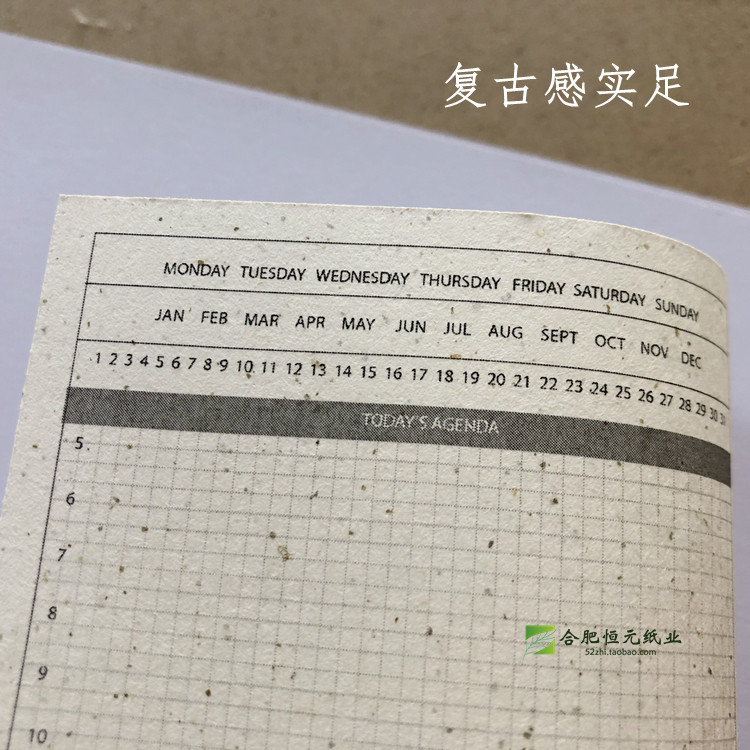 复古感实足
MONDAY TUESDAY WEDNESDAY THURSDAY FRIDAY SATURDAY SUNDAY
JAN FEB MAR APR MAY JUN JUL AUG SEPT OCT NOV DEC
1 2 3 4 5 6 7 8 9 10 11 12 13 14 15 16 17 18 19 20 21 22 23 24 25 26 27 28 29 30 31
TODAY'S AGENDA
5
6
7
8
9
10
合肥恒元纸业
52zhi.taobao.com